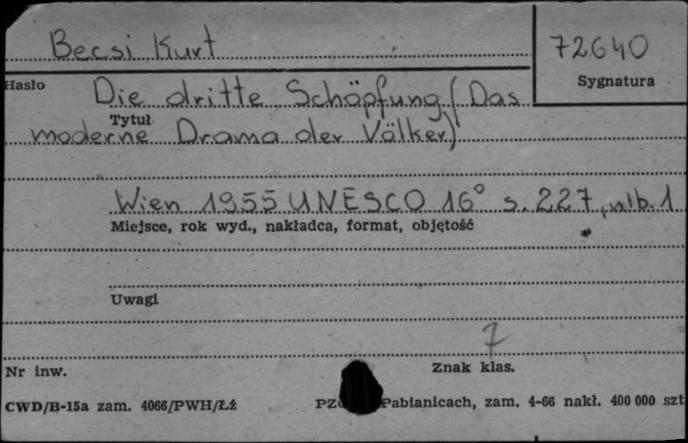 Becsi Kurt
72640
Hasło
Sygnatura
Die dritte Schöpfung (Das
Tytuł
moderne Drama der Völker)
Wien 1955 UNESCO 16° s. 227, nlb. 1
Miejsce, rok wyd., nakładca, format, objętość
Uwagi
7
Nr inw.
Znak klas.
CWD/B-15a zam. 4066/PWH/Łż
Pabianicach, zam. 4-66 nakł. 400 000 szt